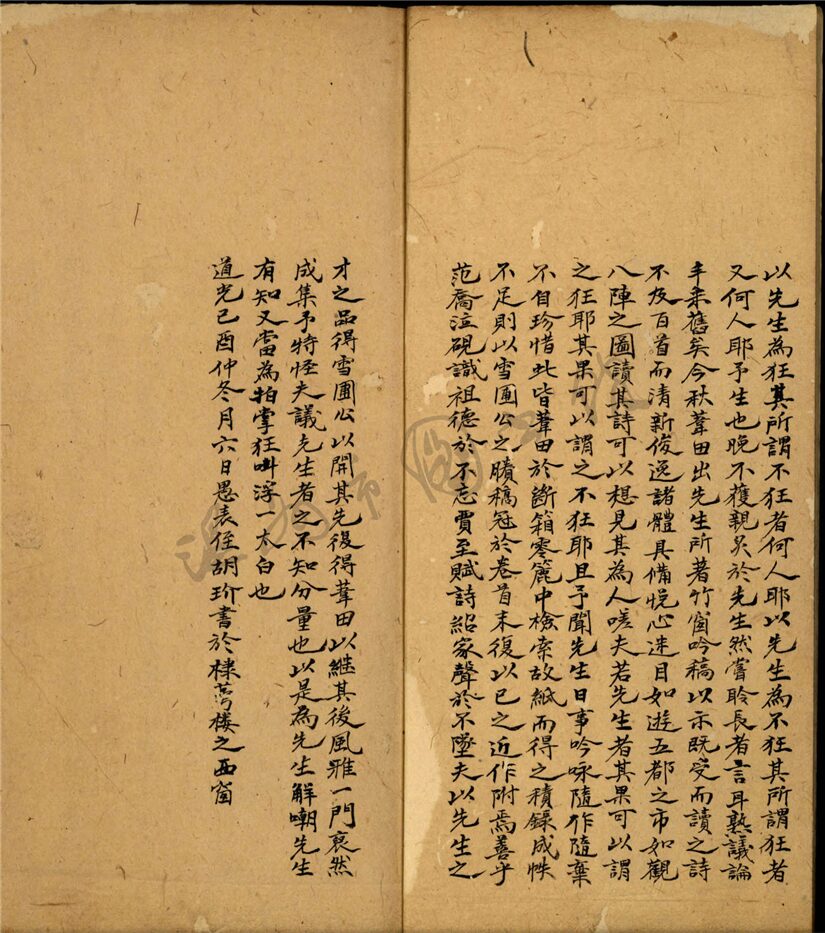 以先生為狂其所謂不狂者何人耶以先生為不狂其所謂狂者
又何人耶予生也晚不獲親炙於先生然嘗聆長者言耳熟議論
丰采舊矣今秋葦田出先生所著竹窗吟稿以示既受而讀之詩
不及百首而清新俊逸諸體具備悅心迷目如遊五都之市如觀
八陣之圖讀其詩可以想見其為人嗟夫若先生者其果可以謂
之狂耶其果可以謂之不狂耶且予聞先生日事吟咏隨作隨棄
不自珍惜此皆葦田於斷箱零簏中檢索故紙而得之積錄成帙
不足則以雪圃公之賸稿冠於卷首末復以己之近作附焉善乎
范喬泣硯識祖德於不忘賈至賦詩紹家聲於不墜夫以先生之
才之品得雪圃公以開其先後得葦田以継其後風雅一門裒然
成集予特怪夫議先生者之不知分量也以是為先生解嘲先生
有知又當為拍掌狂呌浮一太白也
道光己酉仲冬月六日愚表侄胡玠書於棣萼楼之西窗